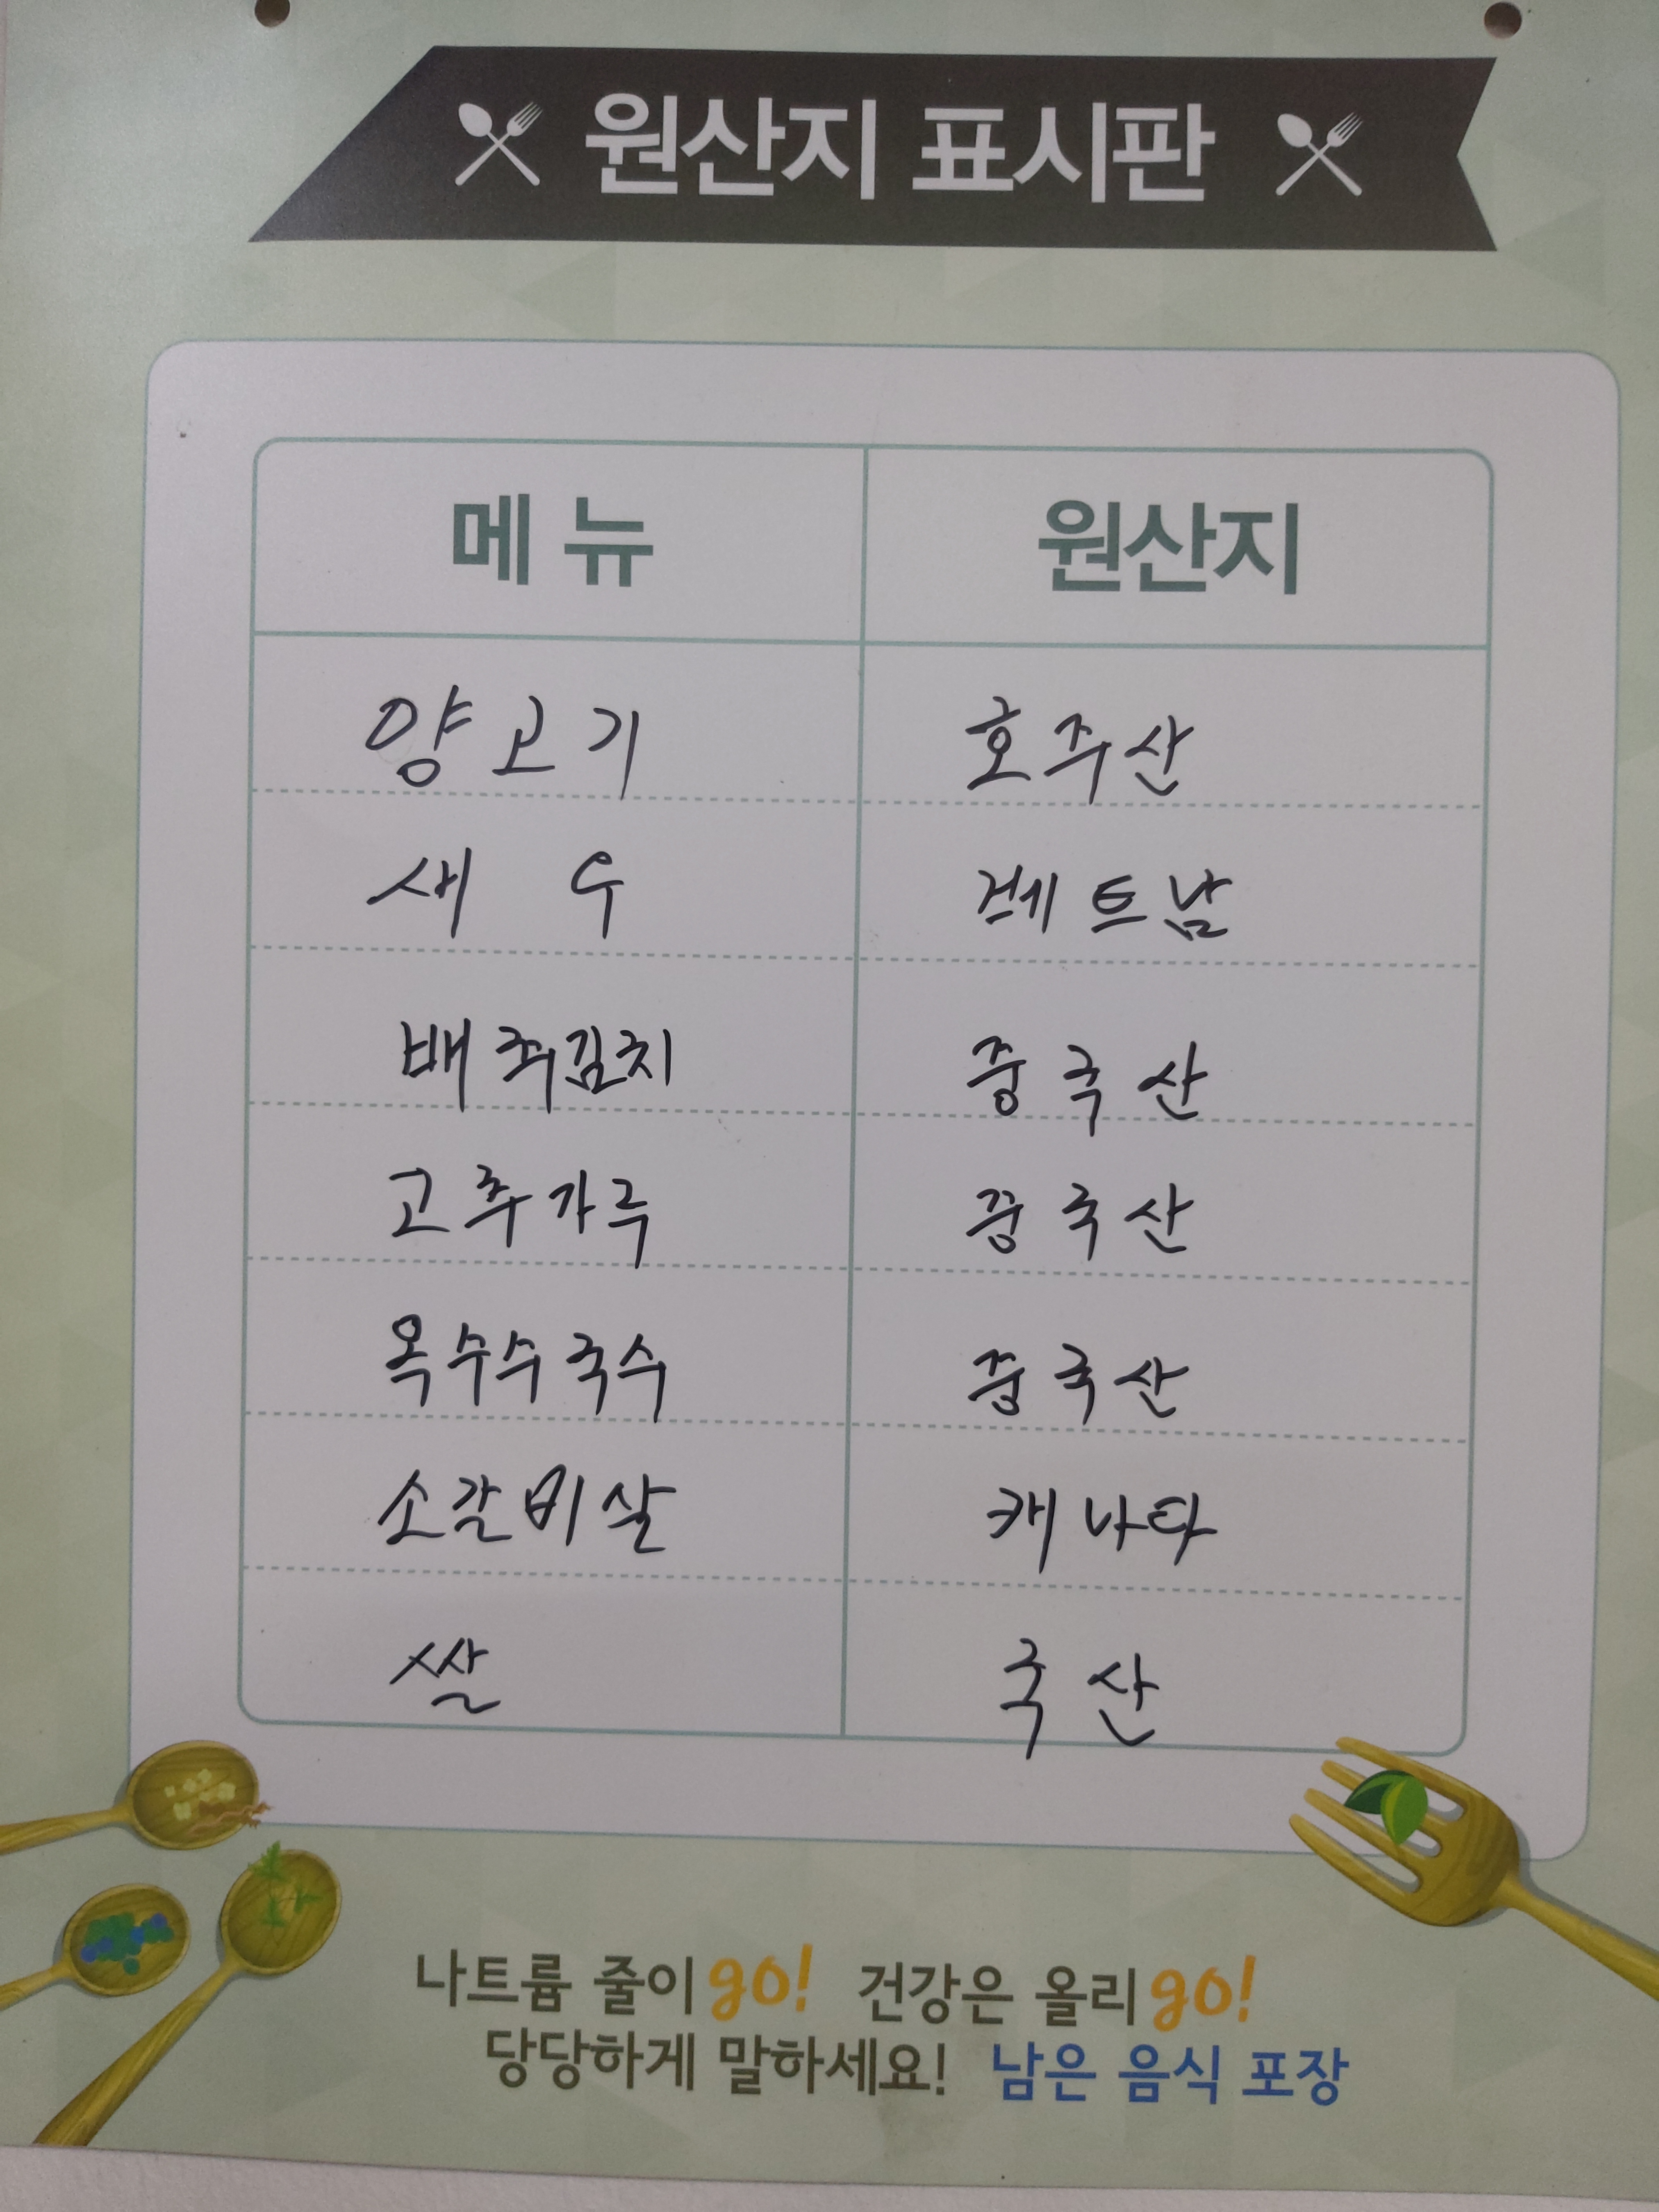 원산지 표시판
메뉴 원산지
양고기 호주산
새우 베트남
배추김치 중국산
고추가루 중국산
옥수수국수 중국산
소갈비살 캐나다
쌀 국산
나트륨 줄이go! 건강은 올리go!
당당하게 말하세요! 남은 음식 포장